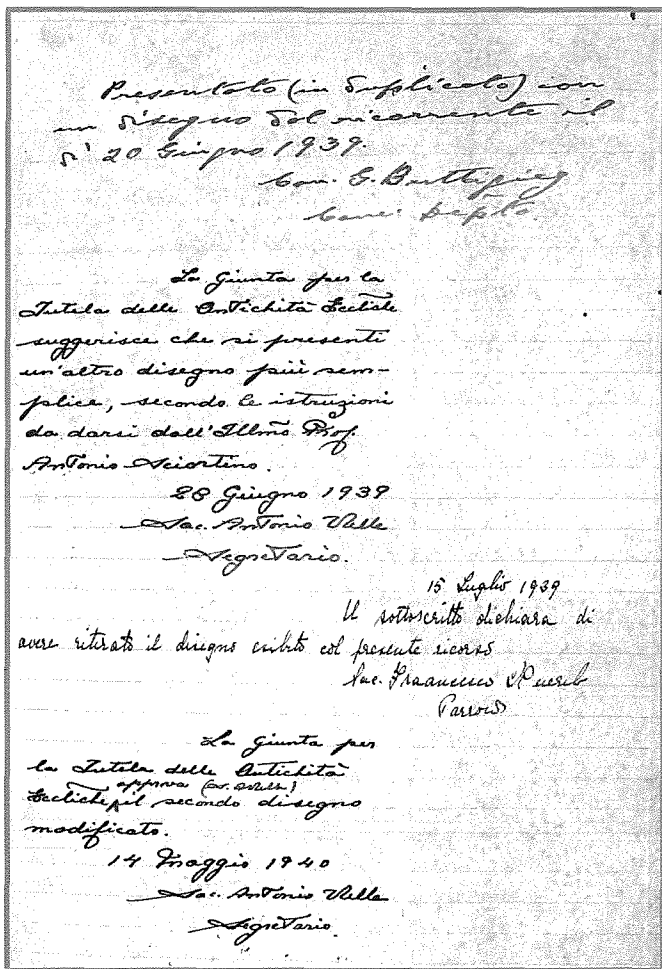 Presentato (in duplicato) con
un disegno dal ricorrente il
dì 20 Giugno 1939.
Can. G. Buttigieg
Canc. Depto
La Giunta per la
Tutela delle Antichità Eccliche
suggerisce che si presenti
un'altro disegno più sem-
plice, secondo le istruzioni
da darsi dall'Illmo Prof.
Antonio Sciortino.
28 Giugno 1939
Sac. Antonio Vella
Segretario.
15 Luglio 1939
Il sottoscritto dichiara di
avere ritirato il disegno esibito col presente ricorso
Sac. Francesco
Parroco
La Giunta per
la Tutela delle Antichità
approva
Eccliche, il secondo disegno
modificato.
14 Maggio 1940
Sac. Antonio Vella
Segretario